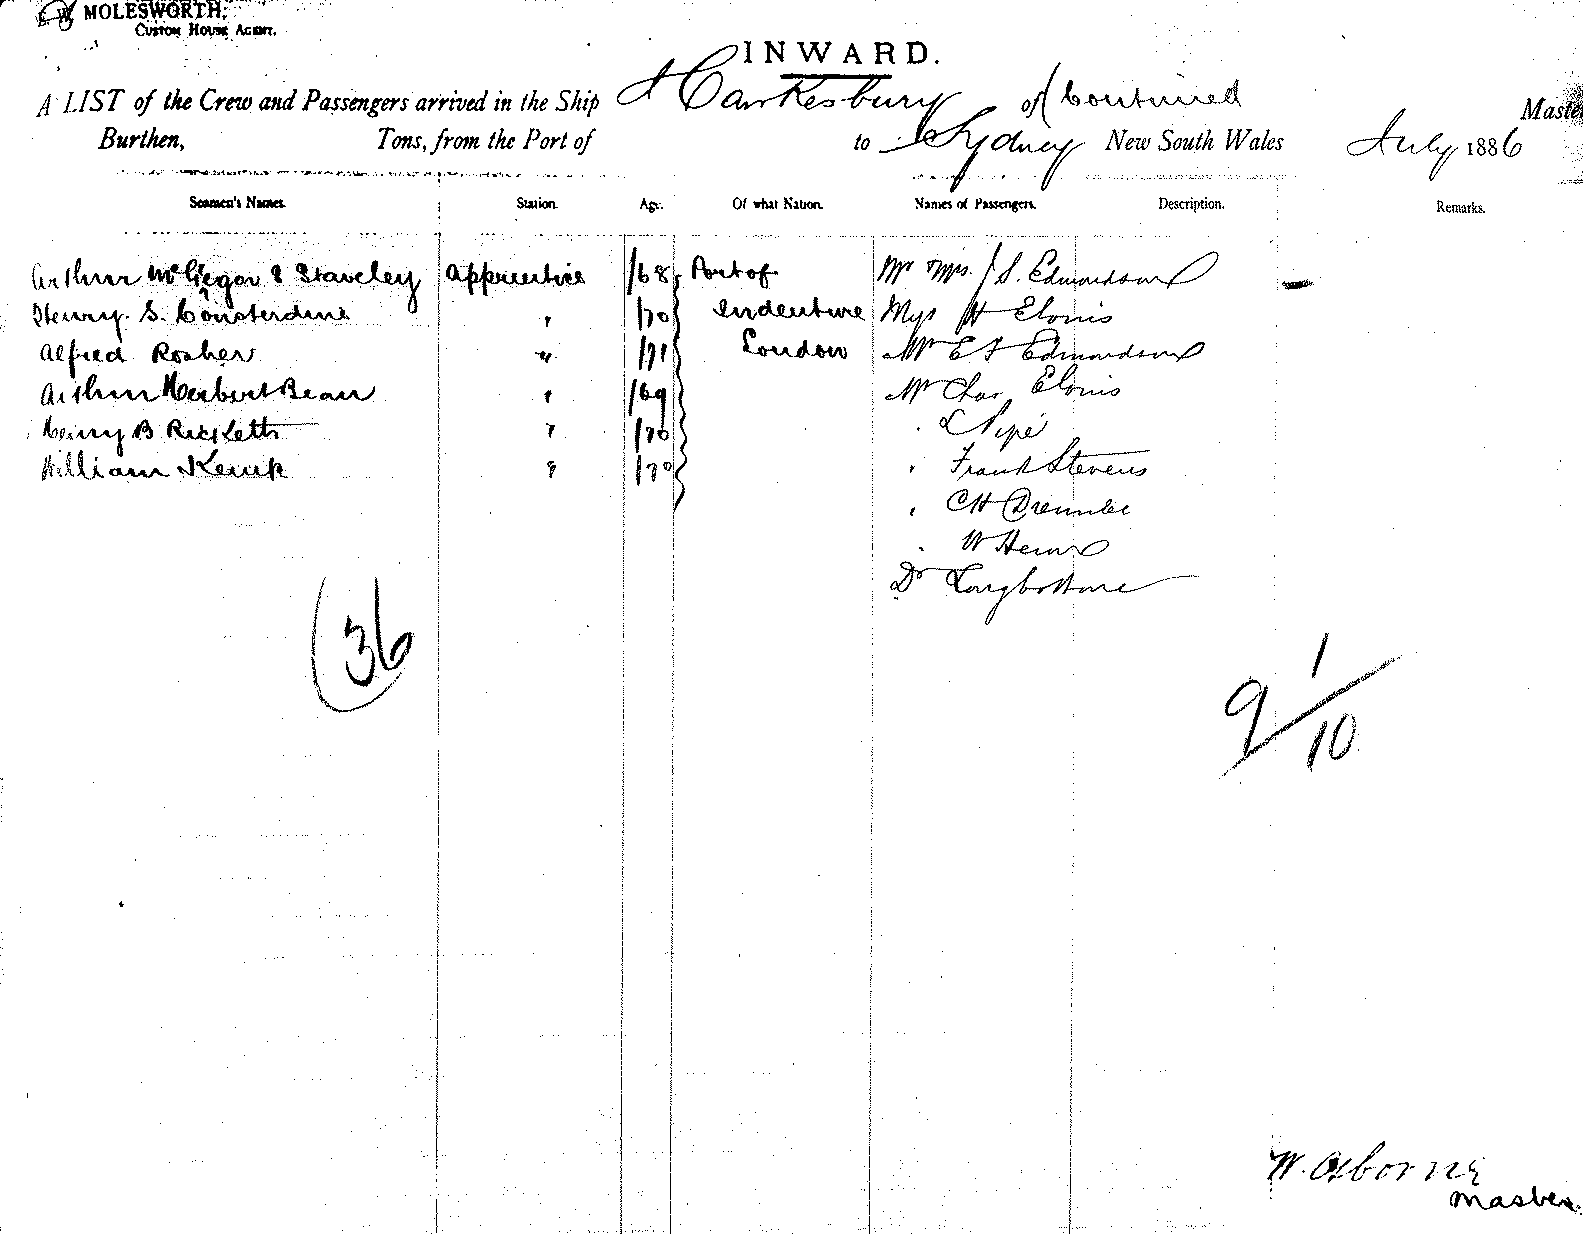 MOLESWORTH,
Custom House Agent.
INWARD.
A LIST of the Crew and Passengers arrived in the Ship Hawkesbury of (Continued Master
Burthen, Tons, from the Port of to Sydney New South Wales July 1886
Seamen's Names. Station. Age. Of what Nation. Names of Passengers. Description. Remarks.
Arthur McGregor S Staveley Apprentice /68 Port of Mr Mrs J S. Edmondson
Henry S. Consterdine " /70 Indenture H Elonis
Alfred Rosher " /71 London Mr E S Edmondson
Arthur Herbert Bean " /69 Mr Chas Elonis
Henry B Ricketts " /70 L Pipe
William Kemp " /70 " Frank Stevens
" CH
" W
Dr Longbottom
(36
9 1/10
W. Osborne
Master